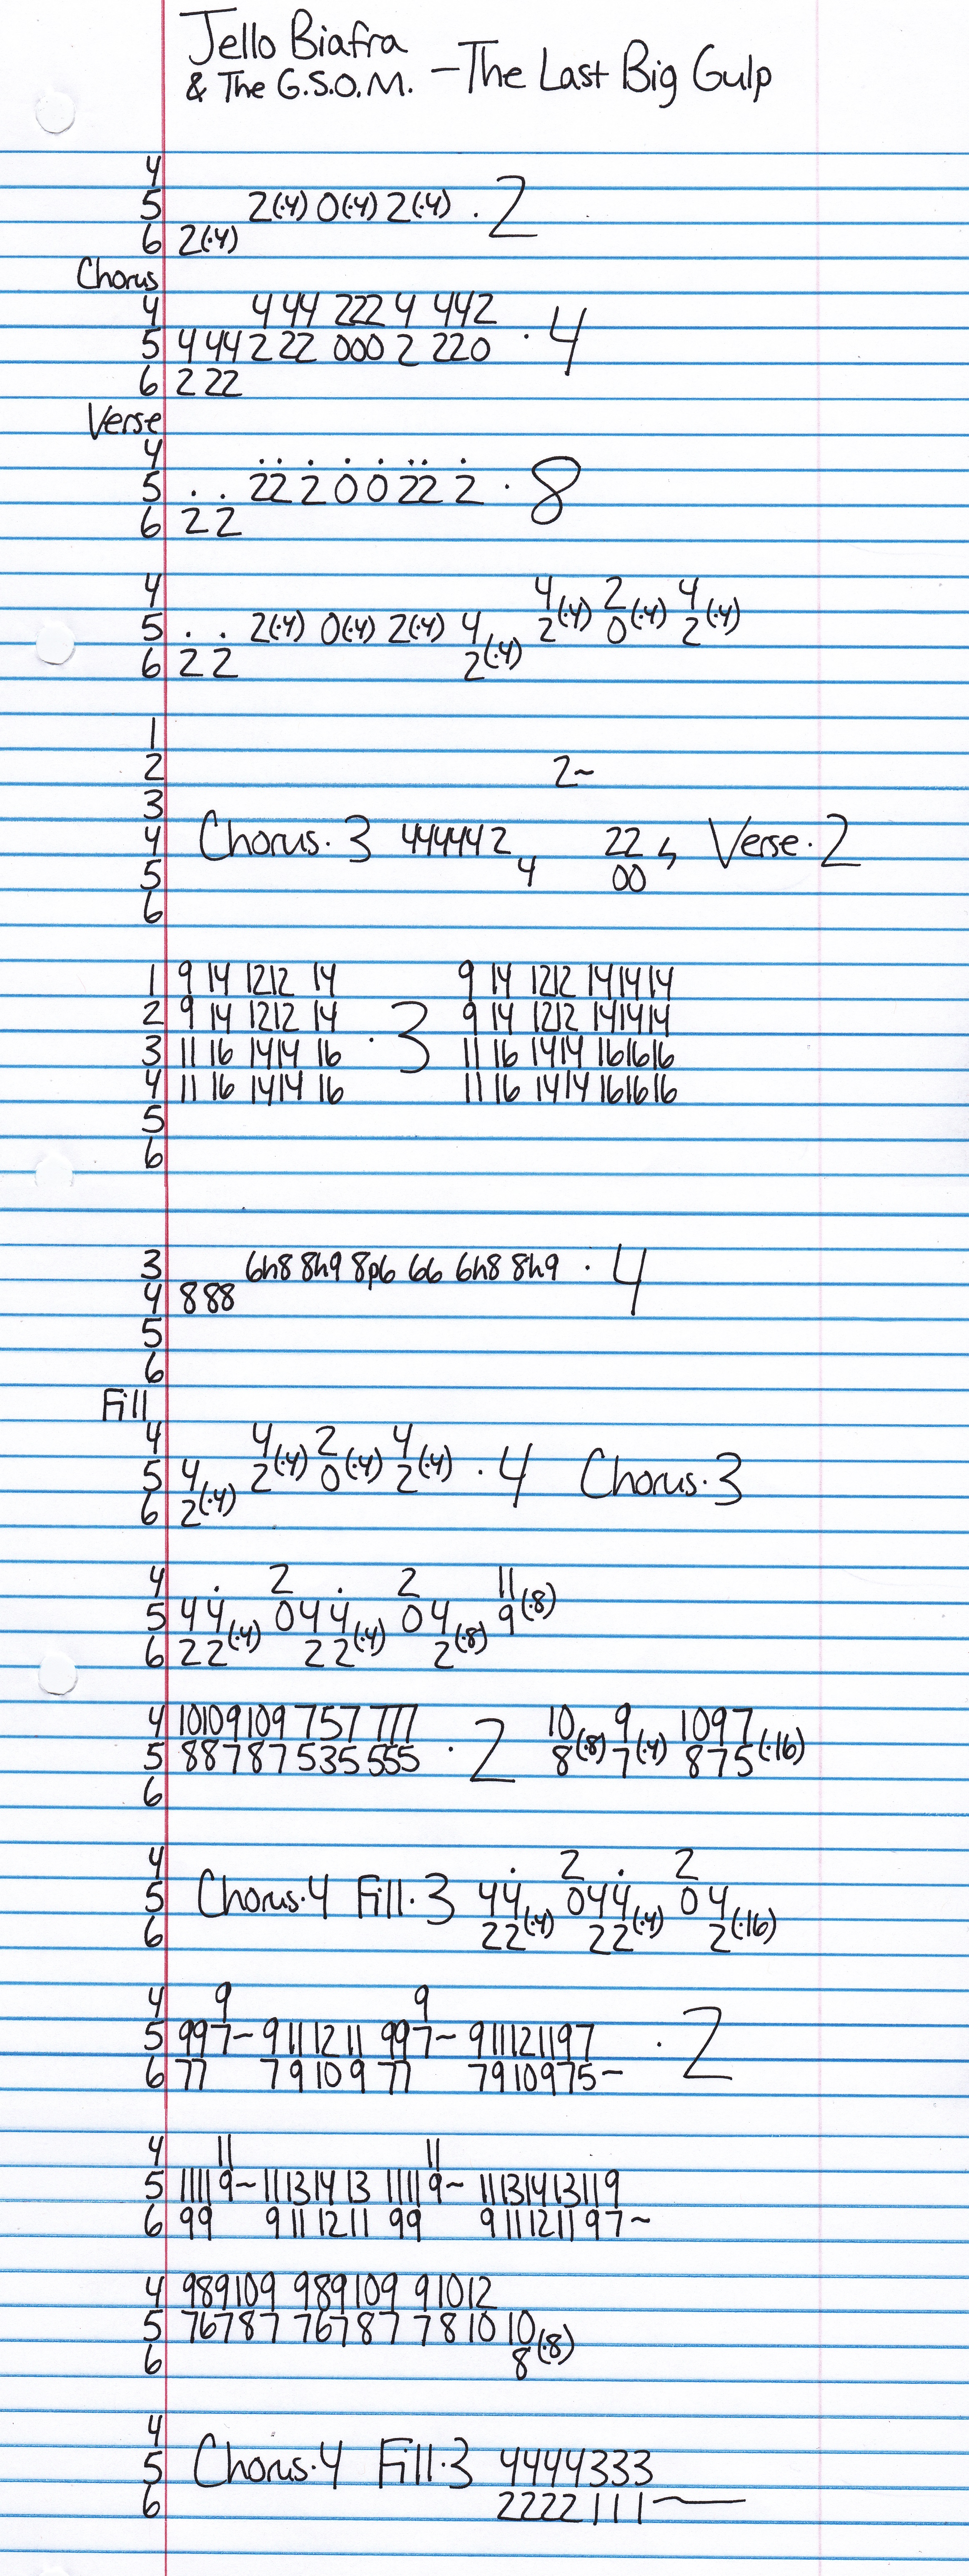 Jello Biafra
& The G.S.O.M. - The Last Big Gulp
4
5 2(·4) 0(·4) 2(·4) · 2
6 2(·4)
Chorus
4 4 44 222 4 442
5 4 44 2 22 000 2 220 · 4
6 2 22
Verse
4
5 . . 22 2 0 0 22 2 · 8
6 2 2
4 4(·4) 2(·4) 4(·4)
5 . . 2(·4) 0(·4) 2(·4) 4 2 0 2
6 2 2 2(·4)
1
2 2~
3
4 Chorus·3 444442 22 Verse·2
5 4 00
6
1 9 14 1212 14 9 14 1212 141414
2 9 14 1212 14 9 14 1212 141414
3 11 16 1414 16 · 3 11 16 1414 161616
4 11 16 1414 16 11 16 1414 161616
5
6
3 6h8 8h9 8p6 66 6h8 8h9 · 4
4 888
5
6
Fill
4 4(·4) 2(·4) 4(·4)
5 4 2 0 2 · 4 Chorus·3
6 2(·4)
4 . 2 . 2 11(·8)
5 4 4 0 4 4 0 4 9
6 2 2(·4) 2 2(·4) 2(·8)
4 10109109 757 777
5 88787535 555 · 2 10 8(·8) 9 7(·4) 1097 875(·16)
6
4 . 2 . 2
5 Chorus·4 Fill·3 44 044 0 4
6 22(·4) 22(·4) 2(·16)
4 9 9
5 997~ 9 11 12 11 997~ 911121197 · 2
6 77 7 9 10 9 77 7910975~
4 11 11
5 11119~ 11131413 11119~ 11131413119
6 99 9 11 1211 99 9 11121197~
4 989109 989109 91012
5 76787 76787 7810 10
6 8(·8)
4
5 Chorus·4 Fill·3 4444333
6 2222111~